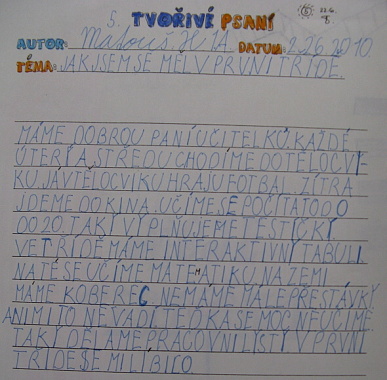 5.
TVOŘIVÉ PSANÍ
AUTOR: Matouš H 1A. DATUM: 2.26.2010.
TÉMA: JAK JSEM SE MĚL V PRVNÍ TŘÍDĚ.
MÁME DOBROU PANÍ UČITELKŮ. KAŽDÉ
ÚTERÍ A STŘEDU CHODÍME DO TĚLOCVI
KU. JÁ V TĚLOCVIKU HRAJU FOTBAL. ZÍTRA
JDEME DO KINA. UČÍME SE POČÍTAT DO O
OD 20. TAKÍ VYPLŇUJEME TESTÍČKÍ.
VE TŘÍDĚ MÁME INTERAKTIVNÍ TABULI
NA TÉ SE UČÍME MATEMATIKU. NA ZEMI
MÁME KOBEREC. NEMÁME MALÉ PŘESTÁVKY.
ANI MI TO NEVADÍ. TEĎKA SE MOC NEUČÍME.
TAKÍ DĚLÁME PRACOVNÍ LISTY. V PRVNÍ
TŘÍDĚ SE MI LÍBILO.